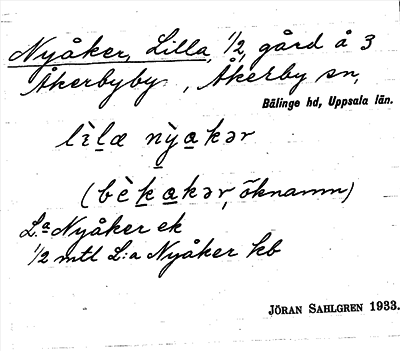 Nyåker, Lilla, 1/2, gård å 3
Åkerbyby, Åkerby sn,
Bälinge hd, Uppsala län.
lìlæ nỳakər
(bèkakər, öknamn)
L:a Nyåker ek
1/2 mtl L:a Nyåker kb
JÖRAN SAHLGREN 1933.